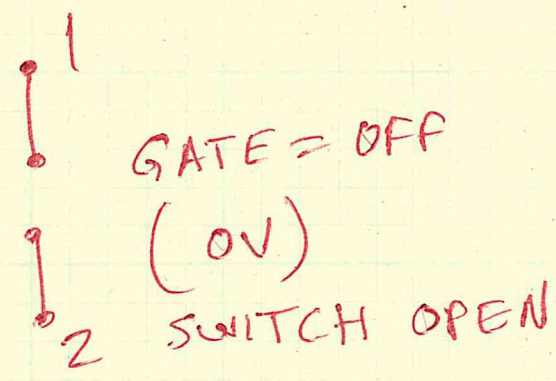 1
GATE = OFF
(0V)
2 SWITCH OPEN